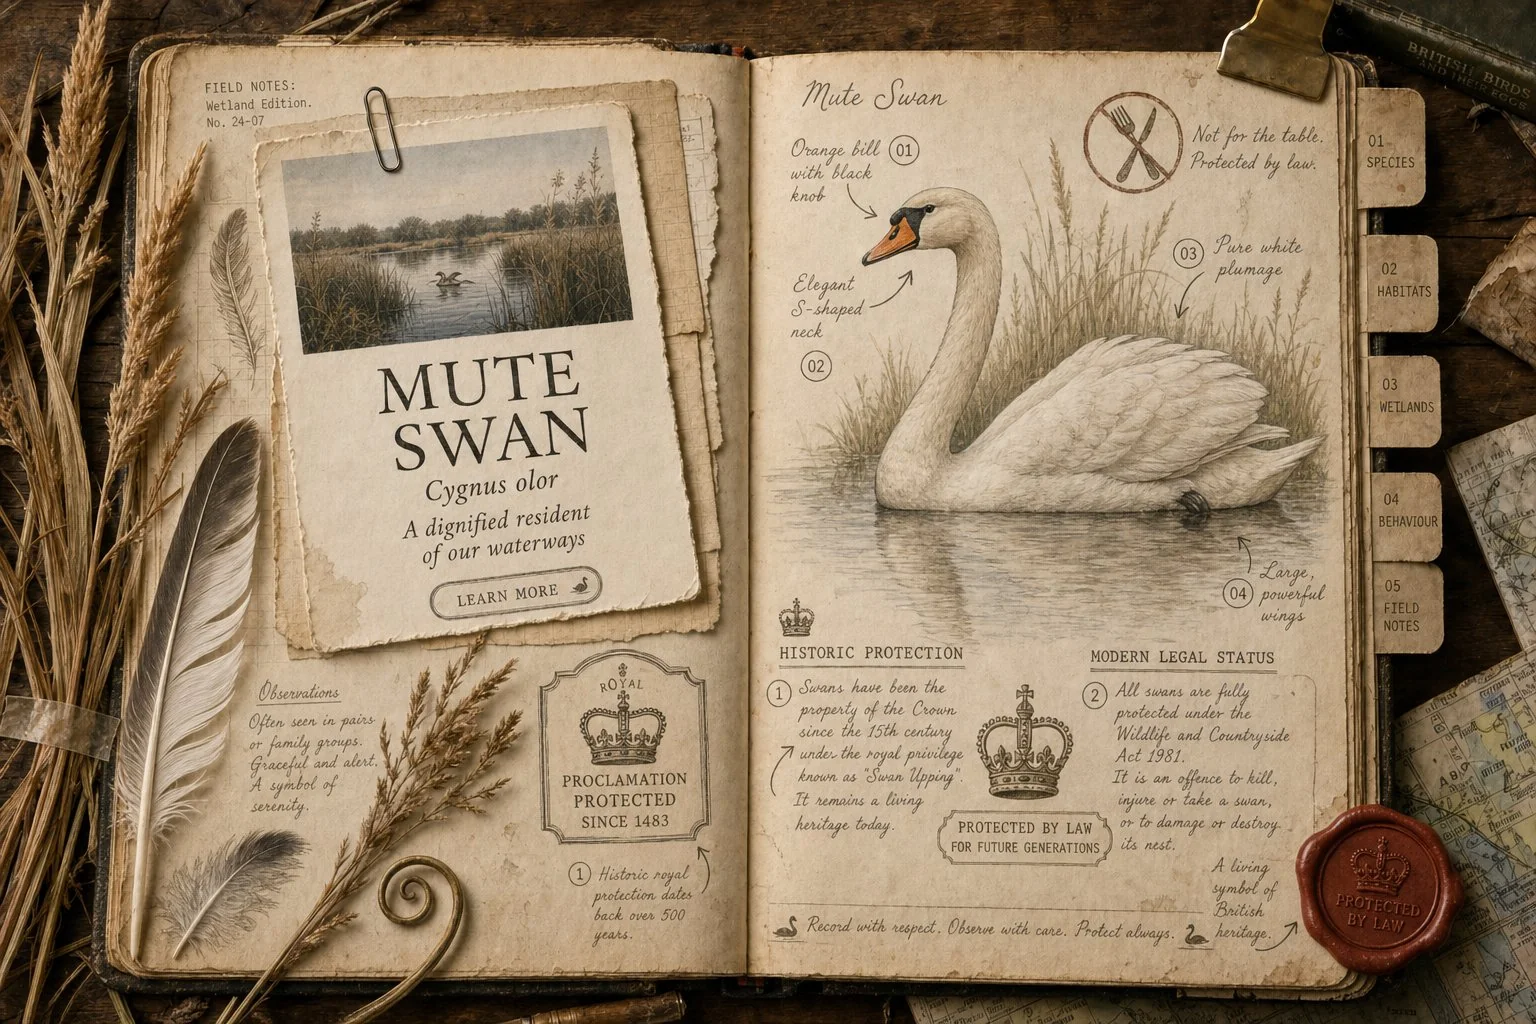 FIELD NOTES:
Wetland Edition.
No. 24-07
MUTE
SWAN
Cygnus olor
A dignified resident
of our waterways
LEARN MORE
Observations
Often seen in pairs
or family groups.
Graceful and alert.
A symbol of
serenity.
ROYAL
PROCLAMATION
PROTECTED
SINCE 1483
1
Historic royal
protection dates
back over 500
years.
Mute Swan
Orange bill
with black
knob
01
Not for the table.
Protected by law.
Elegant
S-shaped
neck
02
03
Pure white
plumage
04
Large,
powerful
wings
HISTORIC PROTECTION
1
Swans have been the
property of the Crown
since the 15th century
under the royal privilege
known as "Swan Upping".
It remains a living
heritage today.
PROTECTED BY LAW
FOR FUTURE GENERATIONS
MODERN LEGAL STATUS
2
All swans are fully
protected under the
Wildlife and Countryside
Act 1981.
It is an offence to kill,
injure or take a swan,
or to damage or destroy
its nest.
A living
symbol of
British
heritage.
Record with respect. Observe with care. Protect always.
PROTECTED
BY LAW
01
SPECIES
02
HABITATS
03
WETLANDS
04
BEHAVIOUR
05
FIELD
NOTES
BRITISH BIRDS
AND THEIR EGGS